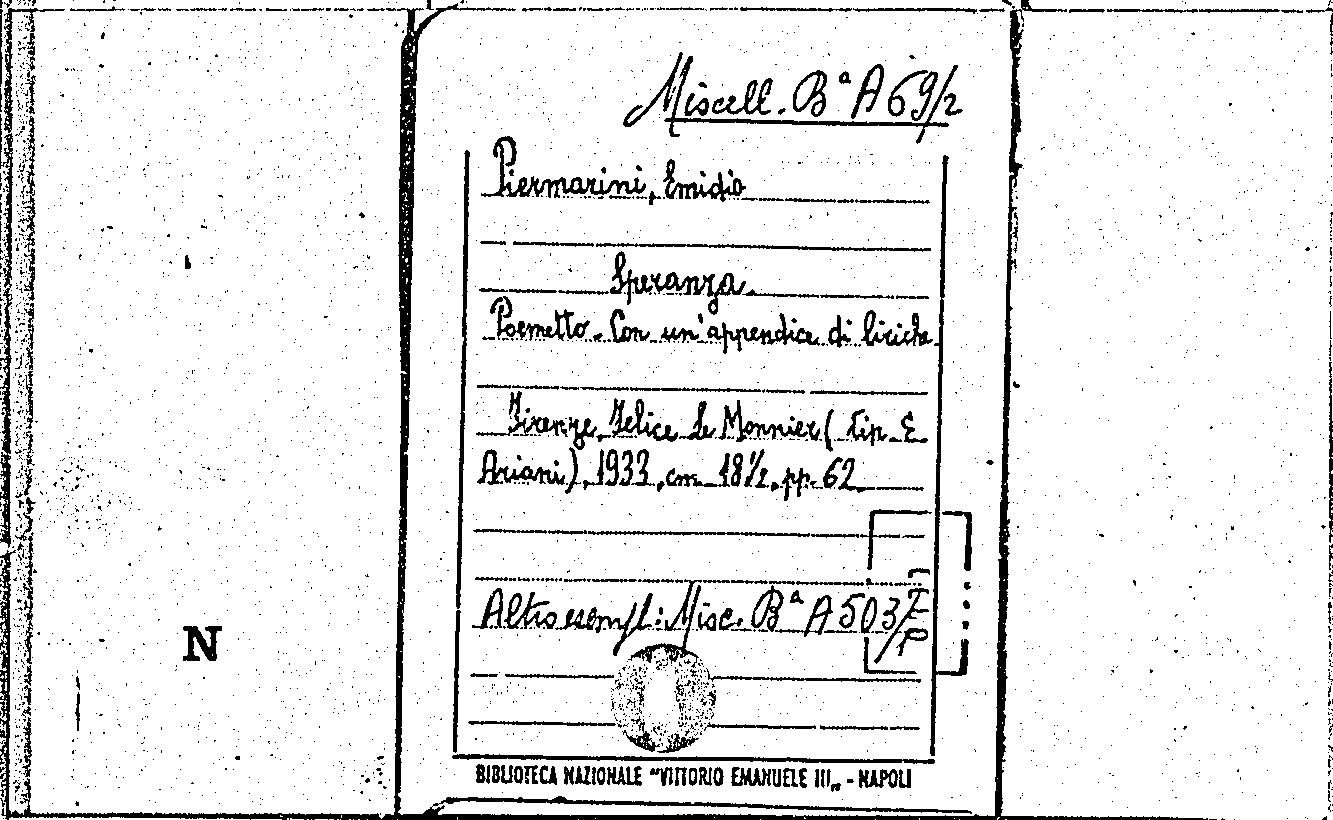 Miscell. Bª A 69/2
Piermarini, Emidio
Speranza.
Poemetto. Con un'appendice di liriche.
Firenze, Felice Le Monnier (tip. E.
Ariani), 1933, cm. 18½, pp. 62.
Altro esempl: Misc. Bª A 503/
N
BIBLIOTECA NAZIONALE "VITTORIO EMANUELE III„ - NAPOLI